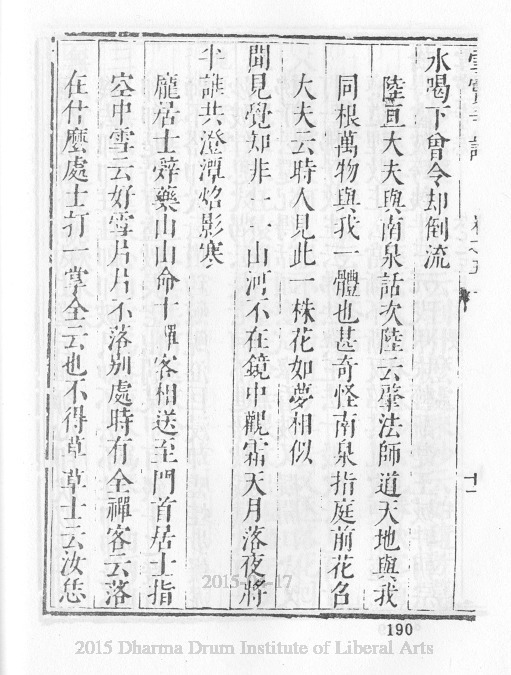 水喝下曾令却倒流
陸亘大夫與南泉話次陸云肇法師道天地與我
同根萬物與我一體也甚奇怪南泉指庭前花召
大夫云時人見此一株花如夢相似
聞見覺知非一一山河不在鏡中觀霜天月落夜將
半誰共澄潭炤影寒
龐居士辭藥山山命十禪客相送至門首居士指
空中雪云好雪片片不落別處時有全禪客云落
在什麼處士打一掌全云也不得草草士云汝恁
十一
190
2015
-17
2015 Dharma Drum Institute of Liberal Arts